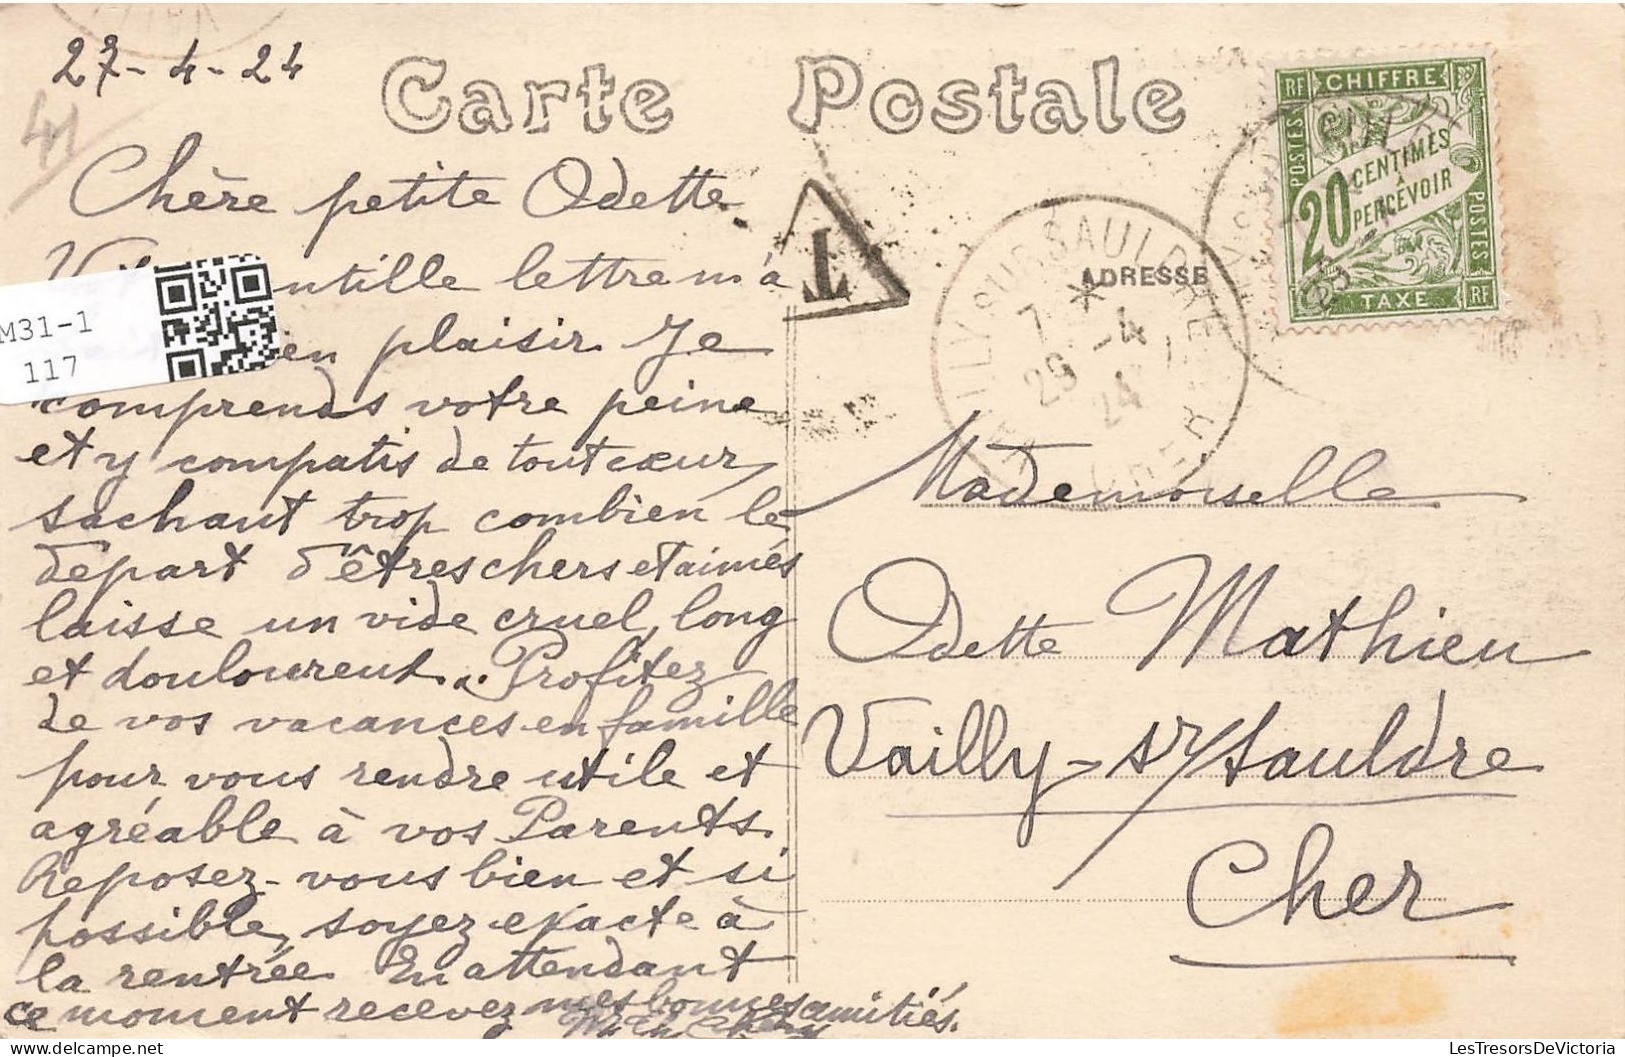 27-4-24
41
Carte Postale
Chère petite Odette
ntille lettre m'a
en plaisir. Je
comprends votre peine
et y compatis de tout cœur,
sachant trop combien le
départ d'êtres chers et aimés
laisse un vide cruel, long
et douloureux... Profitez
de vos vacances en famille
pour vous rendre utile et
agréable à vos Parents.
Reposez-vous bien et si
possible, soyez exacte à
la rentrée En attendant
ce moment recevez mes bonnes amitiés.
M31-1
117
T
ADRESSE
ILLY SUR SAULDRE
7 * 29 -4 24
CHER
RF CHIFFRE
POSTES
20 CENTIMES
À
PERCEVOIR
POSTES
TAXE RF
Mademoiselle
Odette Mathieu
Vailly-sr/Sauldre
Cher
LesTresorsDeVictoria.com